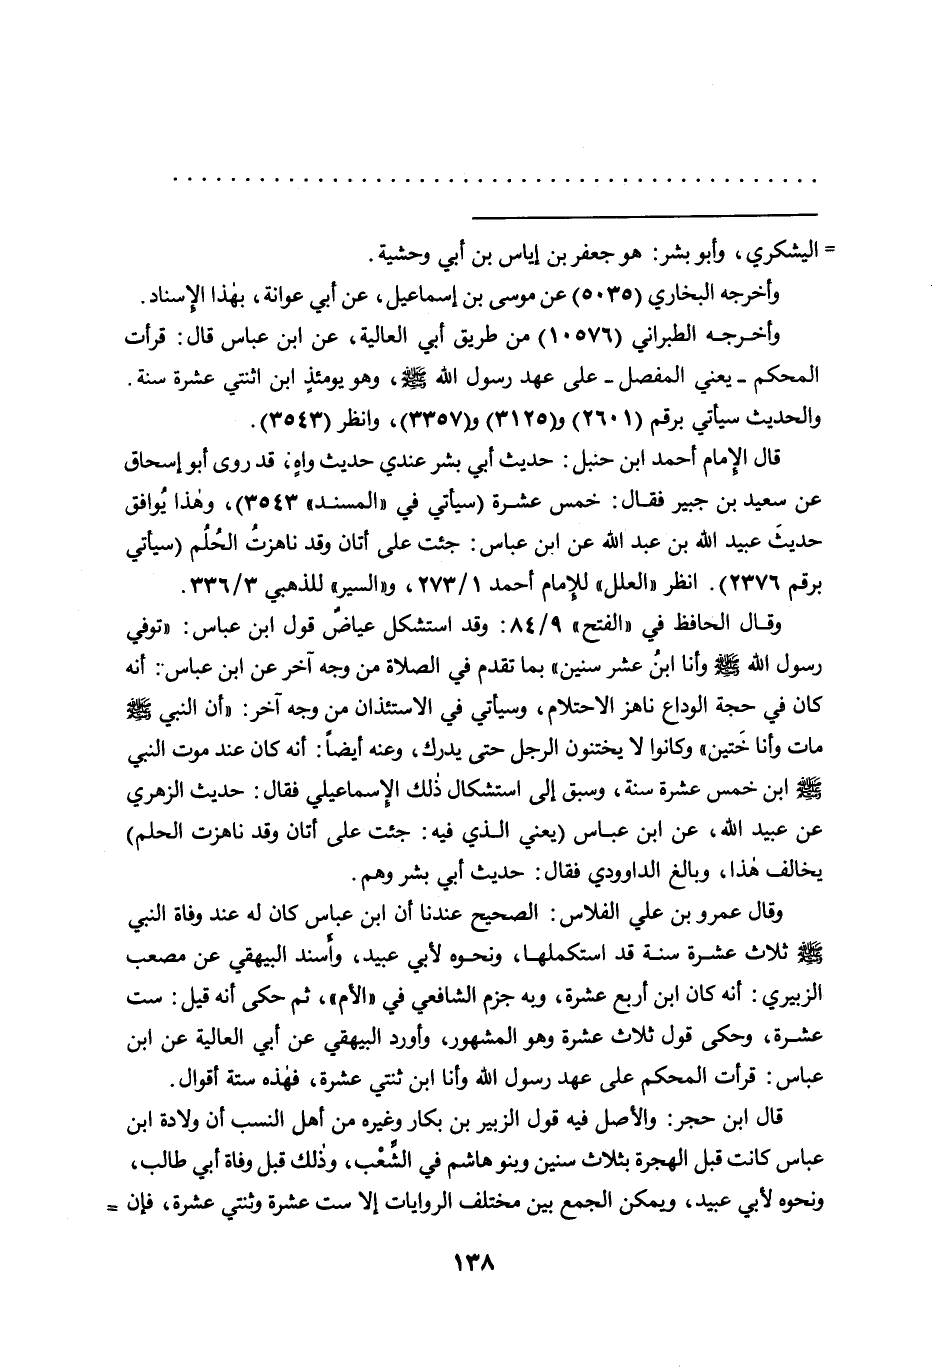 . . . . . . . . . . . . . . . . . . . . . . . . . . . . . . . . . . . . . . . . . . . . .
= اليشكري، وأبو بشر: هو جعفر بن إياس بن أبي وحشية.
وأخرجه البخاري (٥٠٣٥) عن موسى بن إسماعيل، عن أبي عوانة، بهٰذا الإسناد.
وأخرجه الطبراني (١٠٥٧٦) من طريق أبي العالية، عن ابن عباس قال: قرأت
المحكم ـ يعني المفصل ـ على عهد رسول الله ﷺ، وهو يومئذٍ ابن اثنتي عشرة سنة.
والحديث سيأتي برقم (٢٦٠١) و(٣١٢٥) و(٣٣٥٧)، وانظر (٣٥٤٣).
قال الإمام أحمد ابن حنبل: حديث أبي بشر عندي حديث واهٍ، قد روى أبو إسحاق
عن سعيد بن جبير فقال: خمس عشرة (سيأتي في «المسند» ٣٥٤٣)، وهٰذا يُوافق
حديثَ عبيد الله بن عبد الله عن ابن عباس: جئت على أتان وقد ناهزتُ الحُلُم (سيأتي
برقم ٢٣٧٦). انظر «العلل» للإمام أحمد ٢٧٣/١، و«السير» للذهبي ٣٣٦/٣.
وقال الحافظ في «الفتح» ٨٤/٩: وقد استشكل عياضٌ قول ابن عباس: «توفي
رسول الله ﷺ وأنا ابنُ عشر سنين» بما تقدم في الصلاة من وجه آخر عن ابن عباس: أنه
كان في حجة الوداع ناهز الاحتلام، وسيأتي في الاستئذان من وجه آخر: «أن النبي ﷺ
مات وأنا خَتين» وكانوا لا يختنون الرجل حتى يدرك، وعنه أيضاً: أنه كان عند موت النبي
ﷺ ابن خمس عشرة سنة، وسبق إلى استشكال ذٰلك الإسماعيلي فقال: حديث الزهري
عن عبيد الله، عن ابن عباس (يعني الذي فيه: جئت على أتان وقد ناهزت الحلم)
يخالف هٰذا، وبالغ الداوودي فقال: حديث أبي بشر وهم.
وقال عمرو بن علي الفلاس: الصحيح عندنا أن ابن عباس كان له عند وفاة النبي
ﷺ ثلاث عشرة سنة قد استكملها، ونحوه لأبي عبيد، وأسند البيهقي عن مصعب
الزبيري: أنه كان ابن أربع عشرة، وبه جزم الشافعي في «الأم»، ثم حكى أنه قيل: ست
عشرة، وحكى قول ثلاث عشرة وهو المشهور، وأورد البيهقي عن أبي العالية عن ابن
عباس: قرأت المحكم على عهد رسول الله وأنا ابن ثنتي عشرة، فهٰذه ستة أقوال.
قال ابن حجر: والأصل فيه قول الزبير بن بكار وغيره من أهل النسب أن ولادة ابن
عباس كانت قبل الهجرة بثلاث سنين وبنو هاشم في الشِّعْب، وذٰلك قبل وفاة أبي طالب،
ونحوه لأبي عبيد، ويمكن الجمع بين مختلف الروايات إلا ست عشرة وثنتي عشرة، فإن =
١٣٨